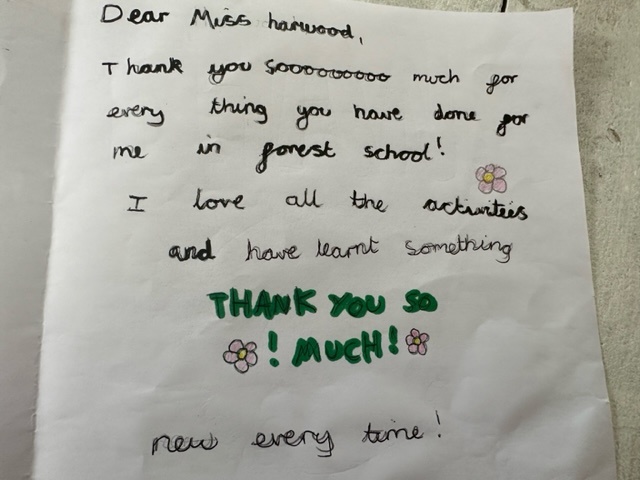 Dear Miss harwood,
Thank you sooooooooo much for
every thing you have done for
me in forest school!
I love all the activitees
and have learnt something
THANK YOU SO
! MUCH!
new every time!